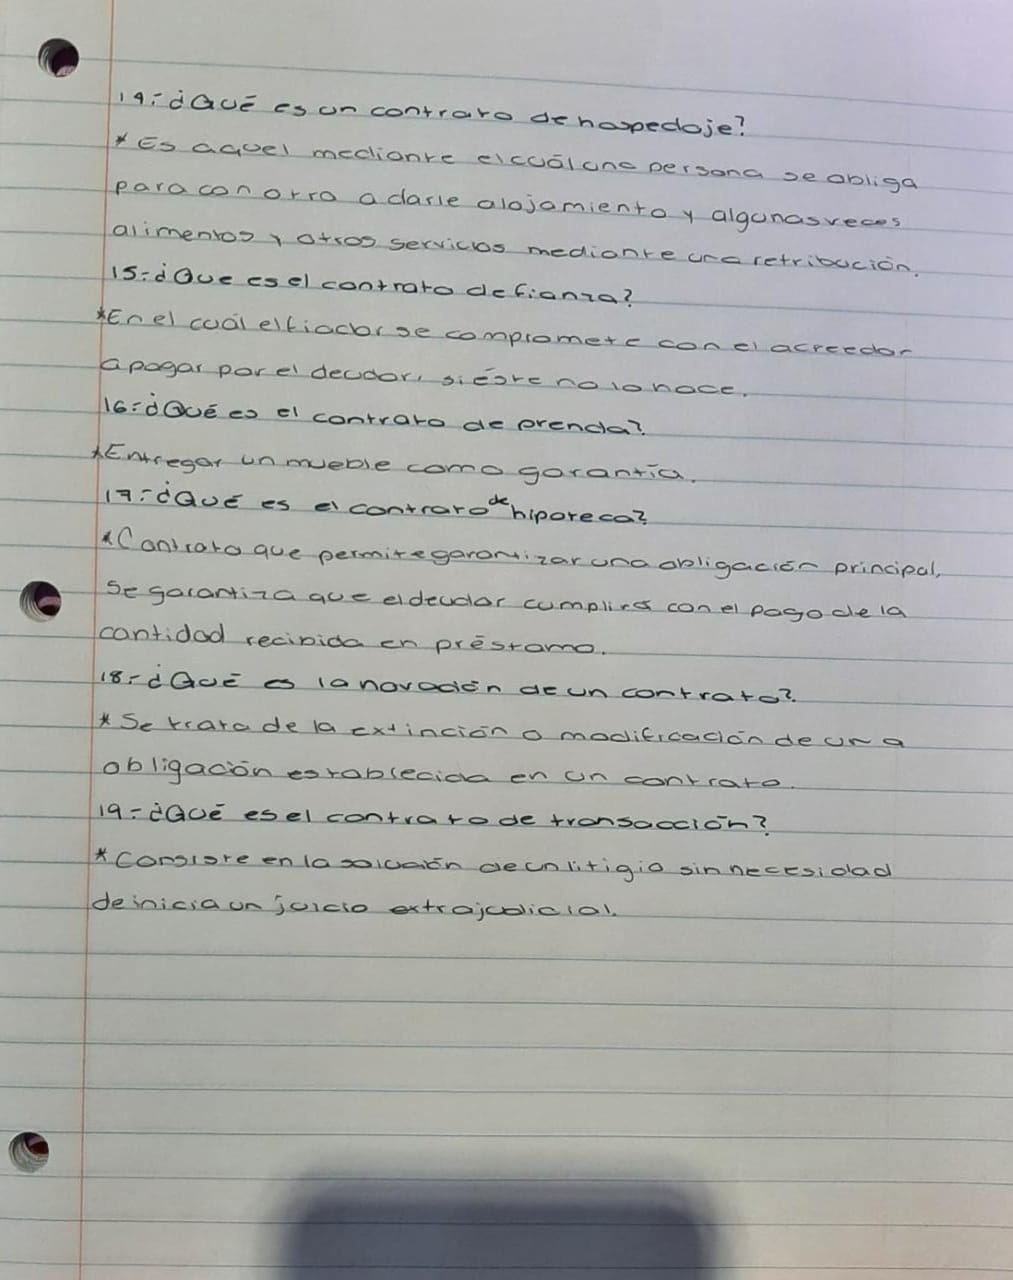 14.- ¿Qué es un contrato de hospedaje?
* Es aquel mediante el cuál una persona se obliga
para con otro a darle alojamiento y algunas veces
alimentos y otros servicios mediante una retribución.
15.- ¿Que es el contrato de fianza?
* En el cuál el fiador se compromete con el acreedor
a pagar por el deudor, si éste no lo hace.
16.- ¿Qué es el contrato de prenda?
* Entregar un mueble como garantía.
17.- ¿Qué es el contrato de hipoteca?
* Contrato que permite garantizar una obligación principal,
se garantiza que el deudor cumplirá con el pago de la
cantidad recibida en préstamo.
18.- ¿Qué es la novación de un contrato?
* Se trata de la extinción o modificación de una
obligación establecida en un contrato.
19.- ¿Qué es el contrato de transacción?
* Consiste en la solución de un litigio sin necesidad
de inicia un juicio extrajudicial.